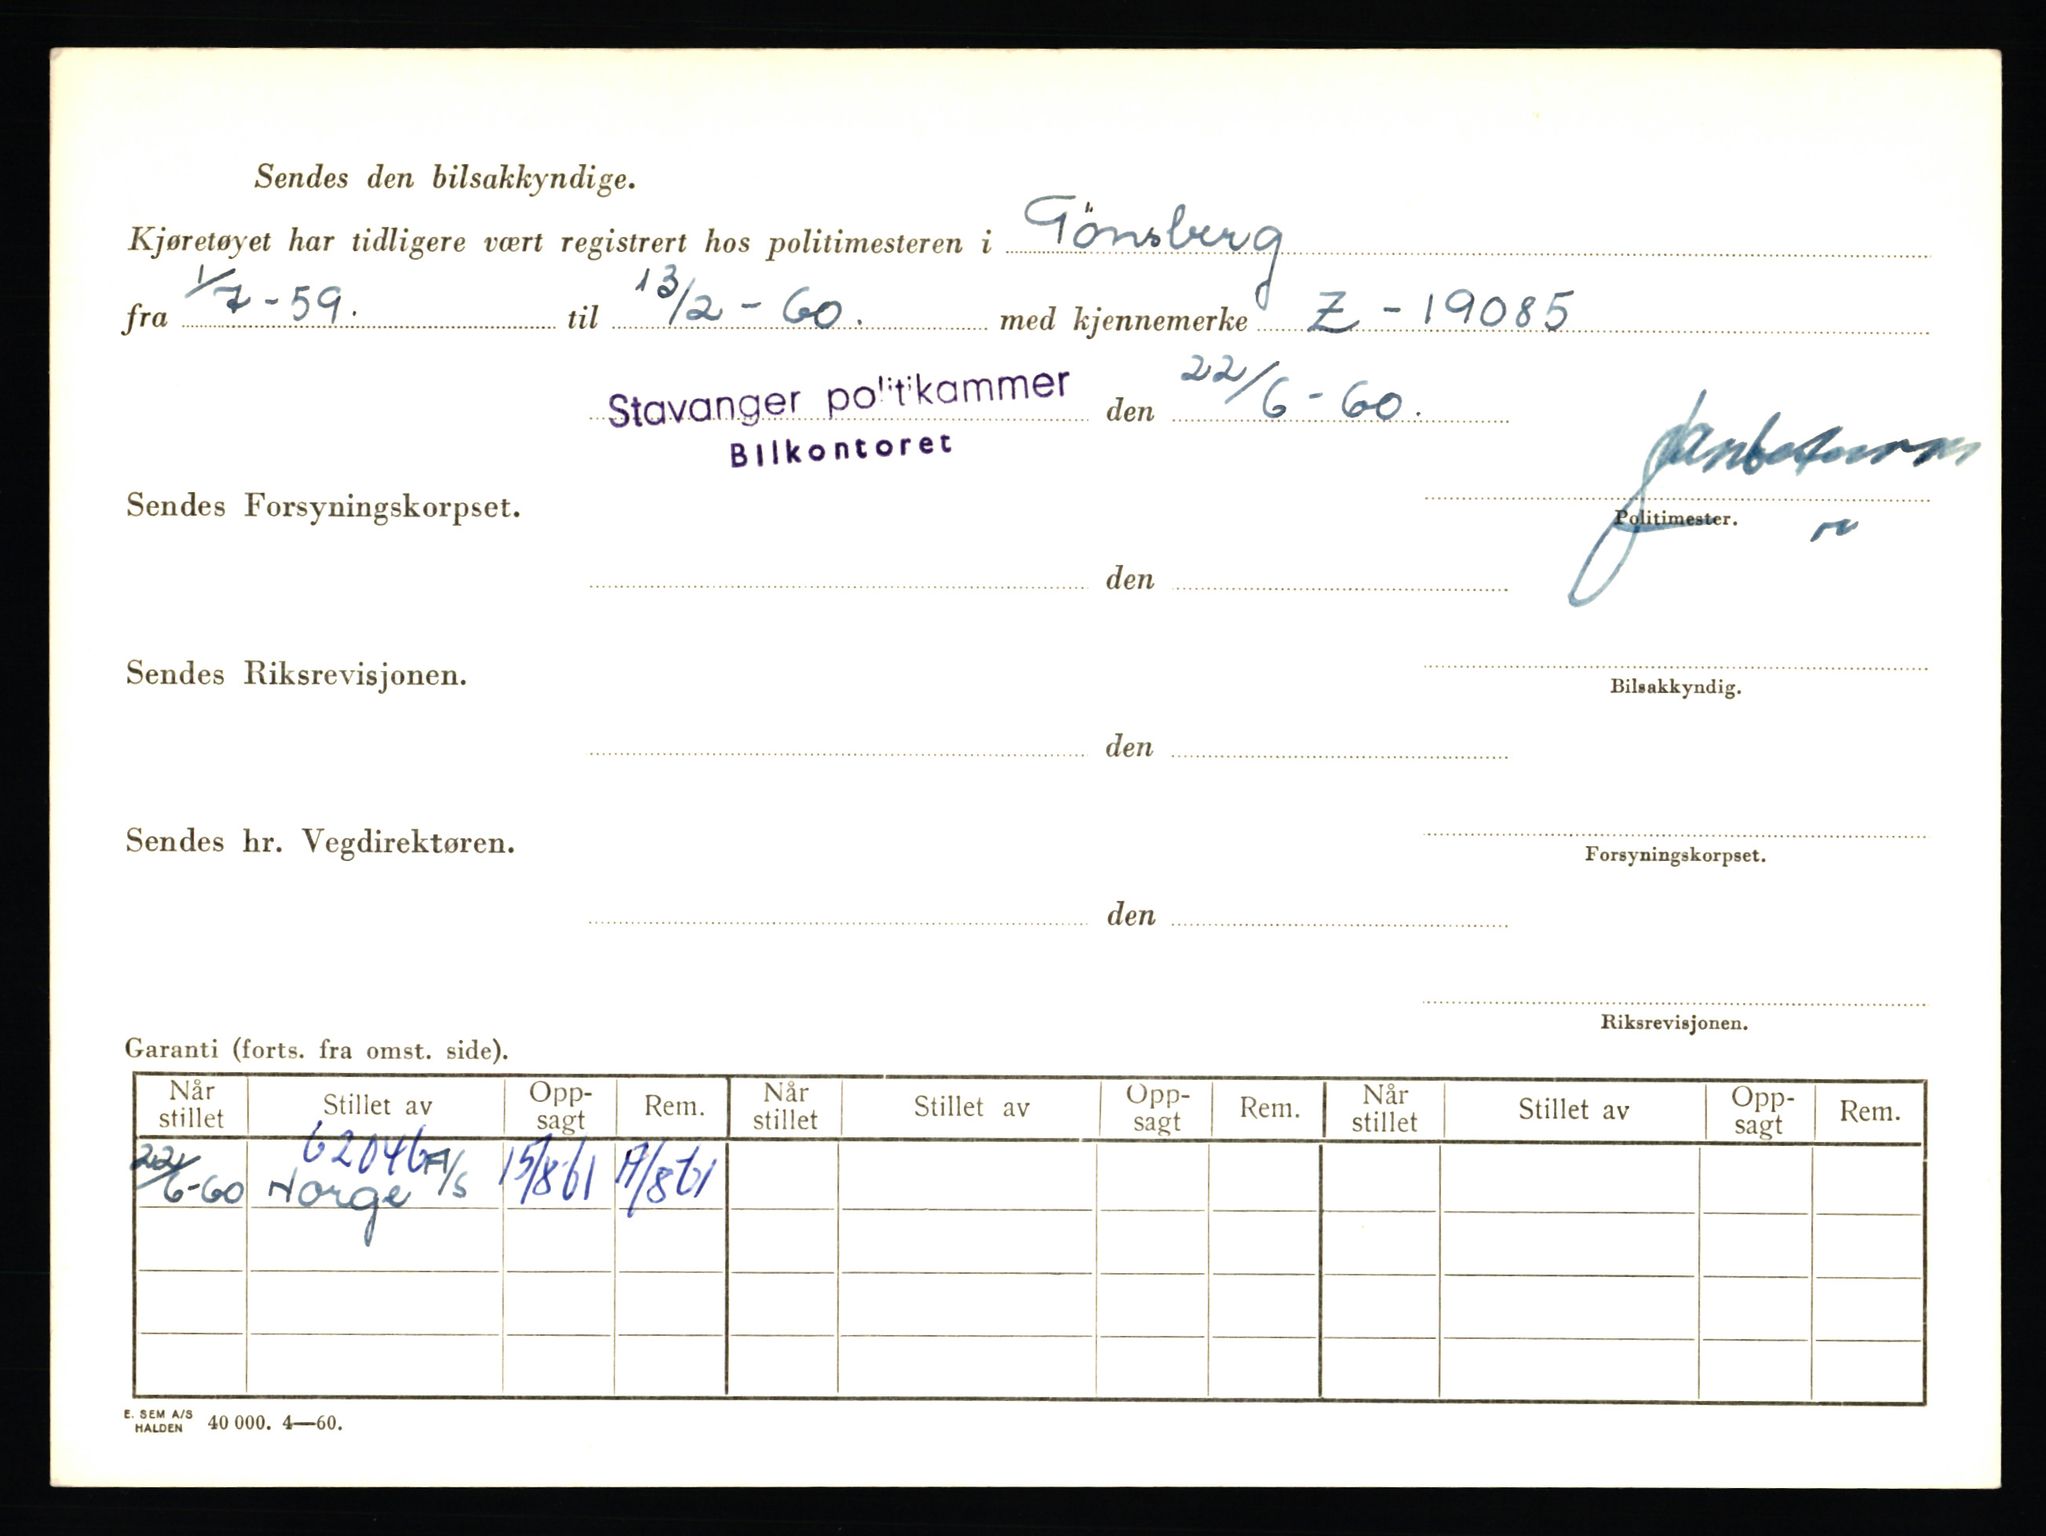 Sendes den bilsakkyndige.
Kjøretøyet har tidligere vært registrert hos politimesteren i Tönsberg
fra 1/7-59. til 13/2-60. med kjennemerke Z-19085
Stavanger politikammer den 22/6-60.
Bilkontoret
Sendes Forsyningskorpset.
Politimester.
den
Sendes Riksrevisjonen.
Bilsakkyndig.
den
Sendes hr. Vegdirektøren.
Forsyningskorpset.
den
Riksrevisjonen.
Garanti (forts. fra omst. side).
Når stillet Stillet av Opp-sagt Rem. Når stillet Stillet av Opp-sagt Rem. Når stillet Stillet av Opp-sagt Rem.
62046
22/6-60 Norge A/S 15/8-61
E. SEM A/S
HALDEN 40 000. 4—60.